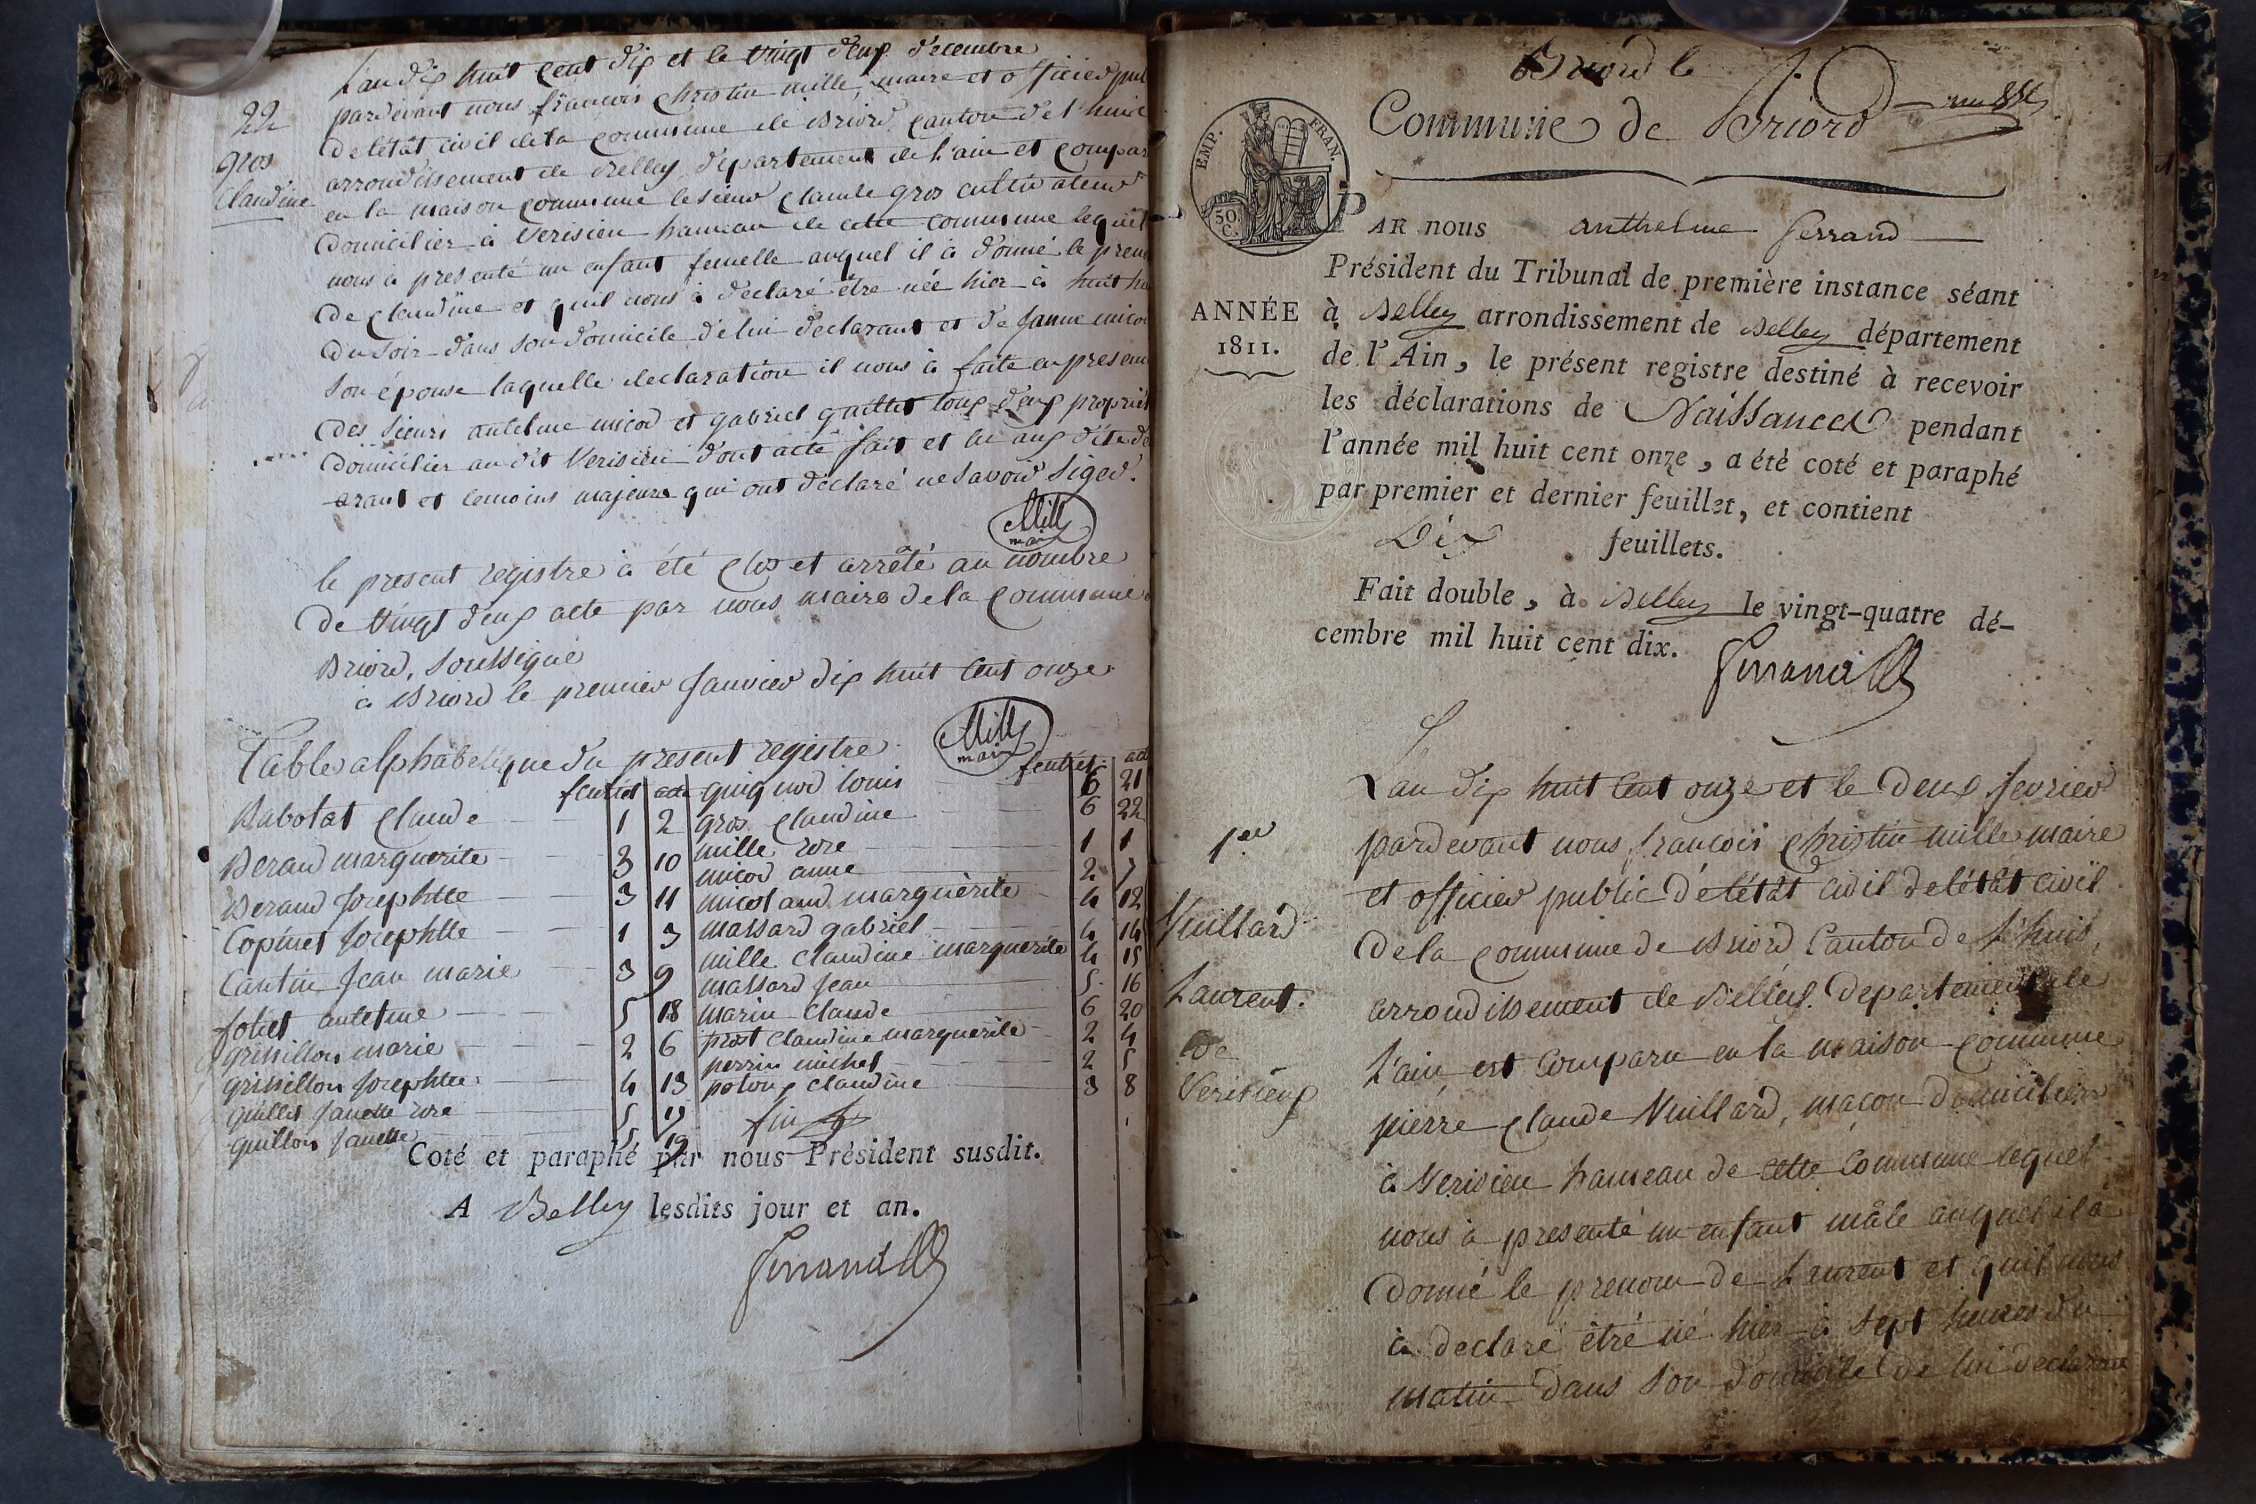 L'an dix huit cent dix et le vingt deux décembre
pardevant nous françois christin mille, maire et officier pub
22
de létât civil de la commune de Briord canton de l'huis
gros
arrondissement de Belley, département de l'ain et compar
Claudine
en la maison commune le sieur claude gros cultivateur
domicilier à Verisieu hameau de cette commune lequel
nous à presenté un enfant femelle auquel il à donné le pren
de claudine et quil nous à déclaré être née hier à huit he
du soir dans son domicile de lui déclarant et de janne micou
son épouse laquelle declaration il nous à faite en presen
des sieurs antelme micod et gabriel quillet tous deux propriet
domicilier au dit Verisieu dont acte fait et lu aux dits dé
arant et temoins majeurs qui ont déclaré ne savoir signer.
Mille
maire
le present registre à été clos et arrêté au nombre
de vingt deux acte par nous maire de la commune
Briord, soussigné
à Briord le premier janvier dix huit cent onze
Mille
maire
Table alphabetique du present registre
feuillet acte
Babolat claude 1 2
Beraud marguerite 3 10
Beraud Josephtte 3 11
Copinet Josephtte 1 3
Cantin Jean marie 3 9
foliet antelme 5 18
grinillon marie 2 6
grinillon Josephtte 4 13
quillet janette rose 5 17
quillon janette 5 19
feuillet acte
quignod louis 6 21
gros claudine 6 22
mille rose 1 1
micod anne 2 7
micolaud marguèrite 4 12
massard gabriel 4 14
mille claudine marguerite 4 15
massard jean 5 16
marin claude 6 20
prost claudine marguerite 2 4
perrin michel 2 5
poloux claudine 3 8
fin
Coté et paraphé par nous Président susdit.
A Belley lesdits jour et an.
Ferrand
Briord le
Commune de Briord
EMP. FRAN.
50.
C.
PAR nous anthelme ferrand
Président du Tribunal de première instance séant
ANNÉE
1811.
à Belley arrondissement de Belley département
de l'Ain, le présent registre destiné à recevoir
les déclarations de Naissances pendant
l'année mil huit cent onze, a été coté et paraphé
par premier et dernier feuillet, et contient
Dix feuillets.
Fait double, à Belley le vingt-quatre dé-
cembre mil huit cent dix.
Ferrand
L'an dix huit cent onze et le deux fevrier
1er
pardevant nous françois christin mille maire
et officier public d'e létât civil de létât civil
Vuillard
de la commune de Briord Canton de L'huis,
Laurent.
arrondissement de Belley. departement de
de
L'ain est comparu en la maison commune
Verisieux
pierre claude Vuillard, maçon domicilier
à Verisieu hameau de cette commune lequel
nous à presenté un enfant mâle auquel il à
donné le prenom de Laurent et quil nous
à declaré être né hier à sept heures du
matin dans son domicile de lui declarant